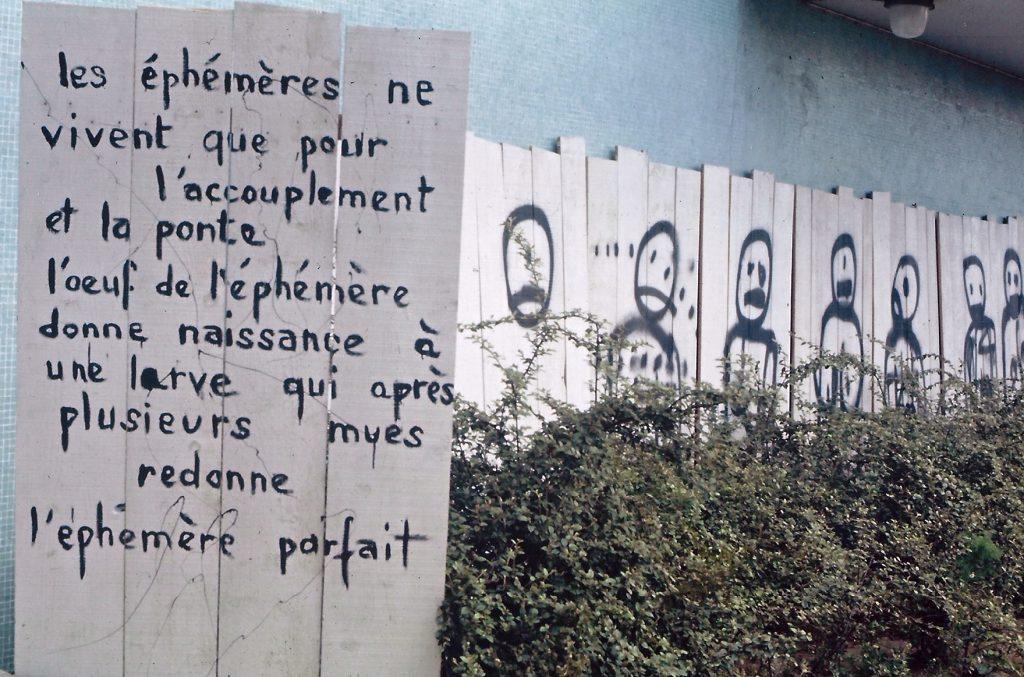 les éphémères ne
vivent que pour
l'accouplement
et la ponte
l'oeuf de l'éphémère
donne naissance à
une larve qui après
plusieurs myes
redonne
l'éphémère parfait